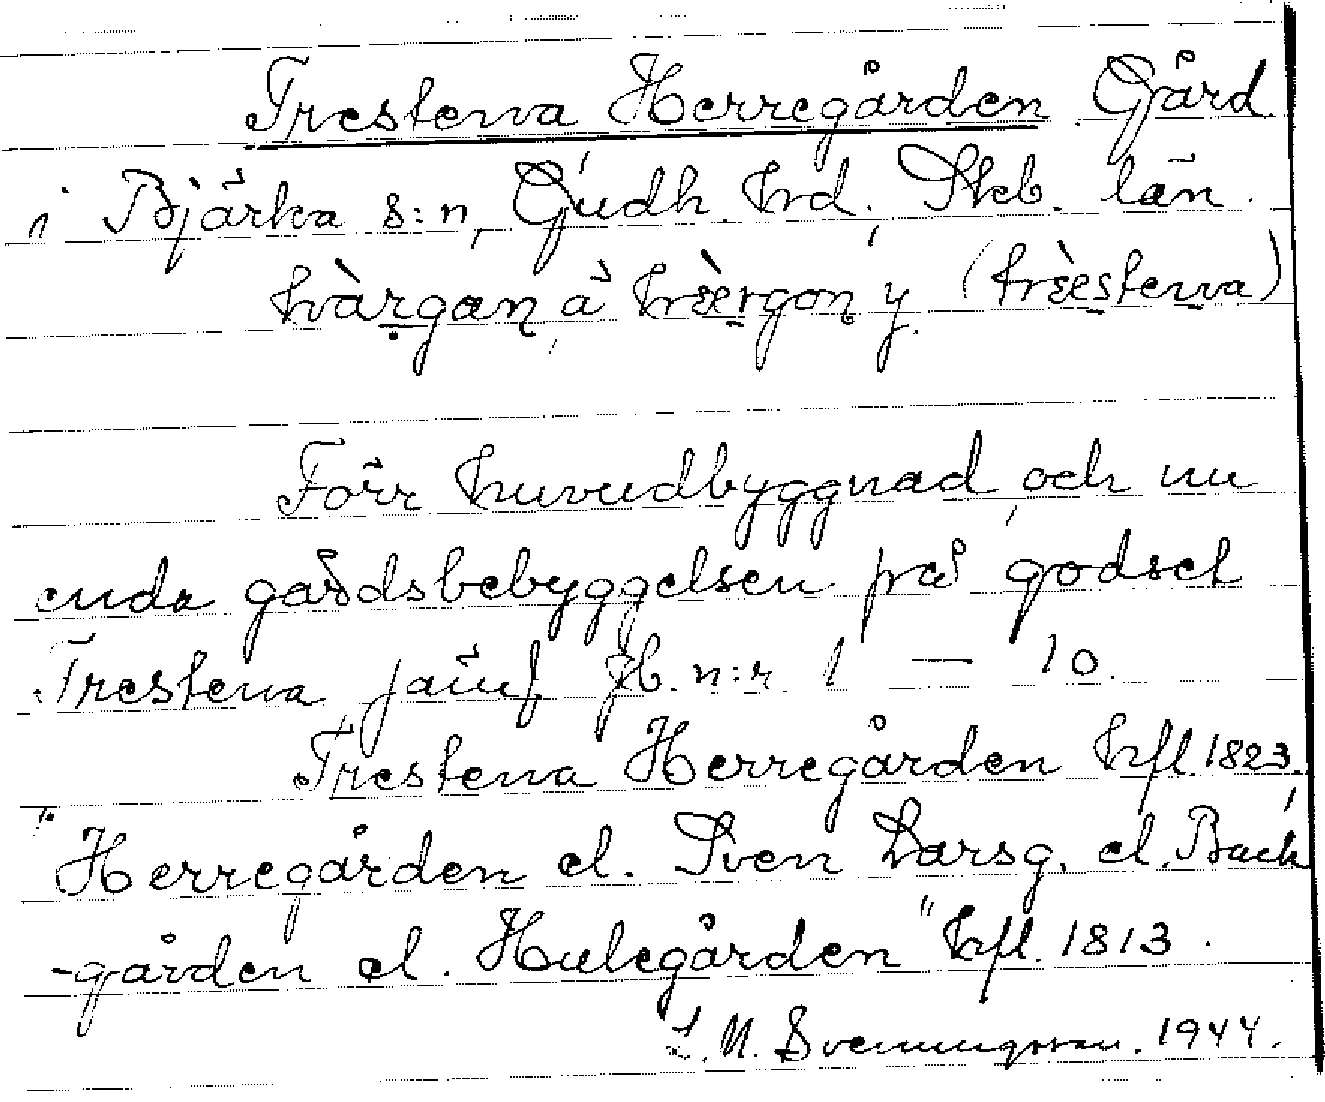 Trestena Herregården Gård
i Bjärka s:n, Gudh. hrd. Skb. län.
hàrgan, å hræ̀rgon y. (trèestena)
Förr huvudbyggnad, och nu
enda gårdsbebyggelsen på godset
Trestena jämf Jb. n:r 1 — 10.
Trestena Herregården hfl 1823.
"Herregården el. Sven Larsg. el. Back
-gården el. Hulegården" hfl. 1813.
L. M. Svenungsson. 1944.